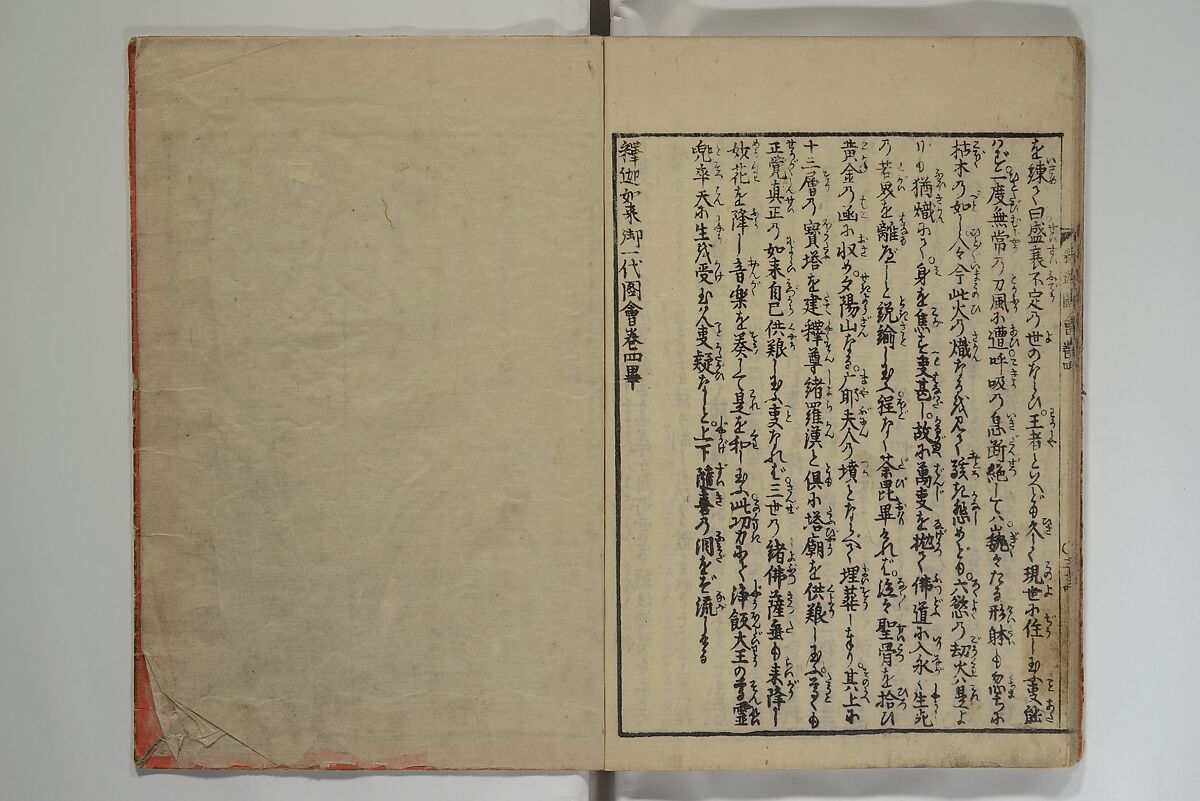 を練て曰盛衰不定の世のならひ。王者といへども久しく現世に住し玉ふ事能
はず一度無常の刀風に遭呼吸の息断絶しては巍々たる形躰も忽ちに
枯木の如し人々今此火の熾なるを見て駭き怠めども六慾の劫火は是よ
りも猶熾にして。身を焦す事甚し。故に萬事を抛て佛道に入永く生死
の苦界を離べしと説諭し玉ふ程なく荼毘畢ければ泣々聖骨を拾ひ
黄金の函に収め夕陽山なる广耶夫人の墳とならべて埋葬しまゐり其上に
十三層の寳塔を建釋尊緒羅漢と倶に塔廟を供粮し玉ふ尊くも
正覺真正の如来自己供粮し玉ふ事なれば三世の緒佛薩埵も来降し
妙花を降し音楽を奏して是を和し玉ふ此功力にて浄飯大王の尊霊
兜率天に生を受玉はん事疑なしと上下隨喜の泪をぞ流しける
釋迦如来御一代圖會巻四畢